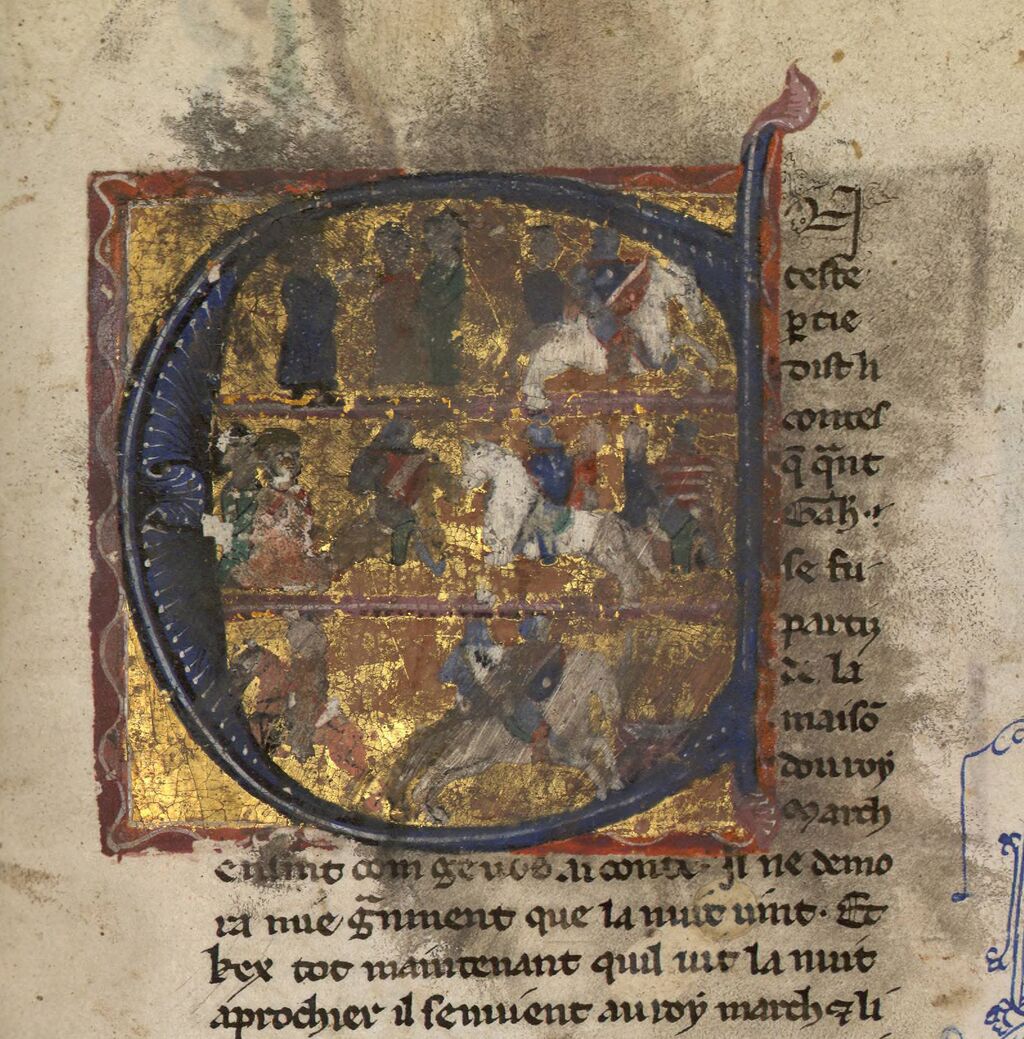 N
ceste
ꝑtie
dist li
contes
q̄ q̄nt
Gah·
se fu
partiz
de la
maisō
dou roy
March
ensint com ge uos ai conte· Il ne demo
ra mie g̃nment que la nuit uint· Et
kex tot maintenant quil uit la nuit
aprochier il senuient au roy march ⁊ li